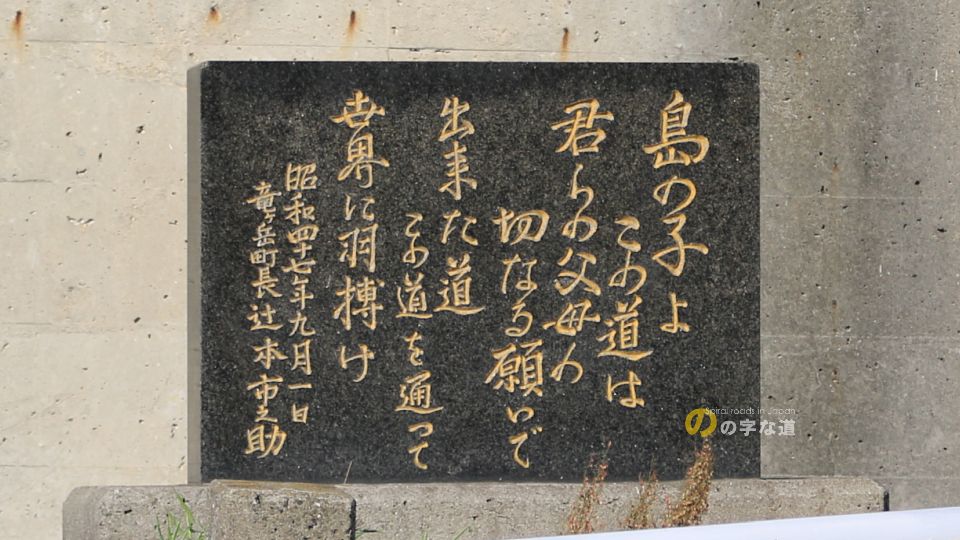 島の子よ
この道は
君らの父母の
切なる願いで
出来た道
この道を通って
世界に羽搏け
昭和四十七年九月一日
竜ヶ岳町長辻本市之助
Spiral roads in Japan
のの字な道